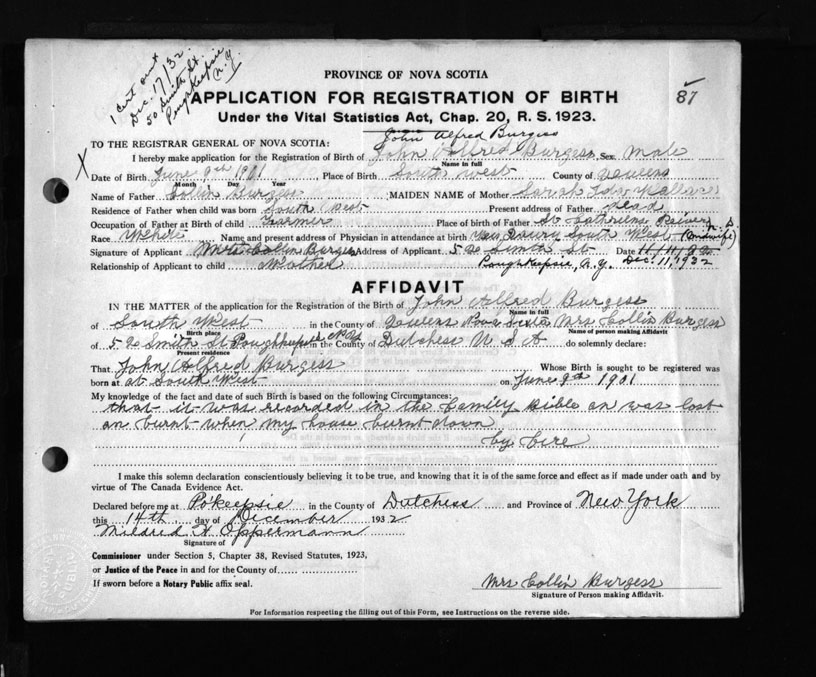 1 Cert out
Dec. 17/32.
50 Smith St.
Poughkeepsie
N.Y.
87
PROVINCE OF NOVA SCOTIA
APPLICATION FOR REGISTRATION OF BIRTH
Under the Vital Statistics Act, Chap. 20, R. S. 1923.
John Alfred Burgess
TO THE REGISTRAR GENERAL OF NOVA SCOTIA:
X I hereby make application for the Registration of Birth of John Alfred Burgess Sex Male
Name in full
Date of Birth June 9th 1901 Place of Birth South West County of Queens
Month Day Year
Name of Father Collin Burgess MAIDEN NAME of Mother Sarah Ida Wallace
Residence of Father when child was born South West Present address of Father dead
Occupation of Father at Birth of child Farmer Place of birth of Father St
Race White Name and present address of Physician in attendance at birth South West (Midwife)
Signature of Applicant Mrs Collin Burgess Address of Applicant Smith St Date
Relationship of Applicant to child Mother Poughkeepsie, N.Y. Dec. 11, 1932
AFFIDAVIT
IN THE MATTER of the application for the Registration of the Birth of John Alfred Burgess
Name in full
of South West in the County of Queens Nova Scotia Mrs Collin Burgess
Birth place Name of person making Affidavit
of Smith St Poughkeepsie in the County of Dutchess U S A do solemnly declare:
Present residence
That John Alfred Burgess Whose Birth is sought to be registered was
born at at South West on June 9th 1901
My knowledge of the fact and date of such Birth is based on the following Circumstances:
that it was recorded in the family Bible an was lost
an burnt when my house burnt down
by fire
I make this solemn declaration conscientiously believing it to be true, and knowing that it is of the same force and effect as if made under oath and by
virtue of The Canada Evidence Act.
Declared before me at Po'keepsie in the County of Dutchess and Province of New York
this 14th day of December 1932
Mildred H. Oppermann
Signature of
Commissioner under Section 5, Chapter 38, Revised Statutes, 1923,
or Justice of the Peace in and for the County of
If sworn before a Notary Public affix seal.
Mrs Collin Burgess
Signature of Person making Affidavit.
For Information respecting the filling out of this Form, see Instructions on the reverse side.